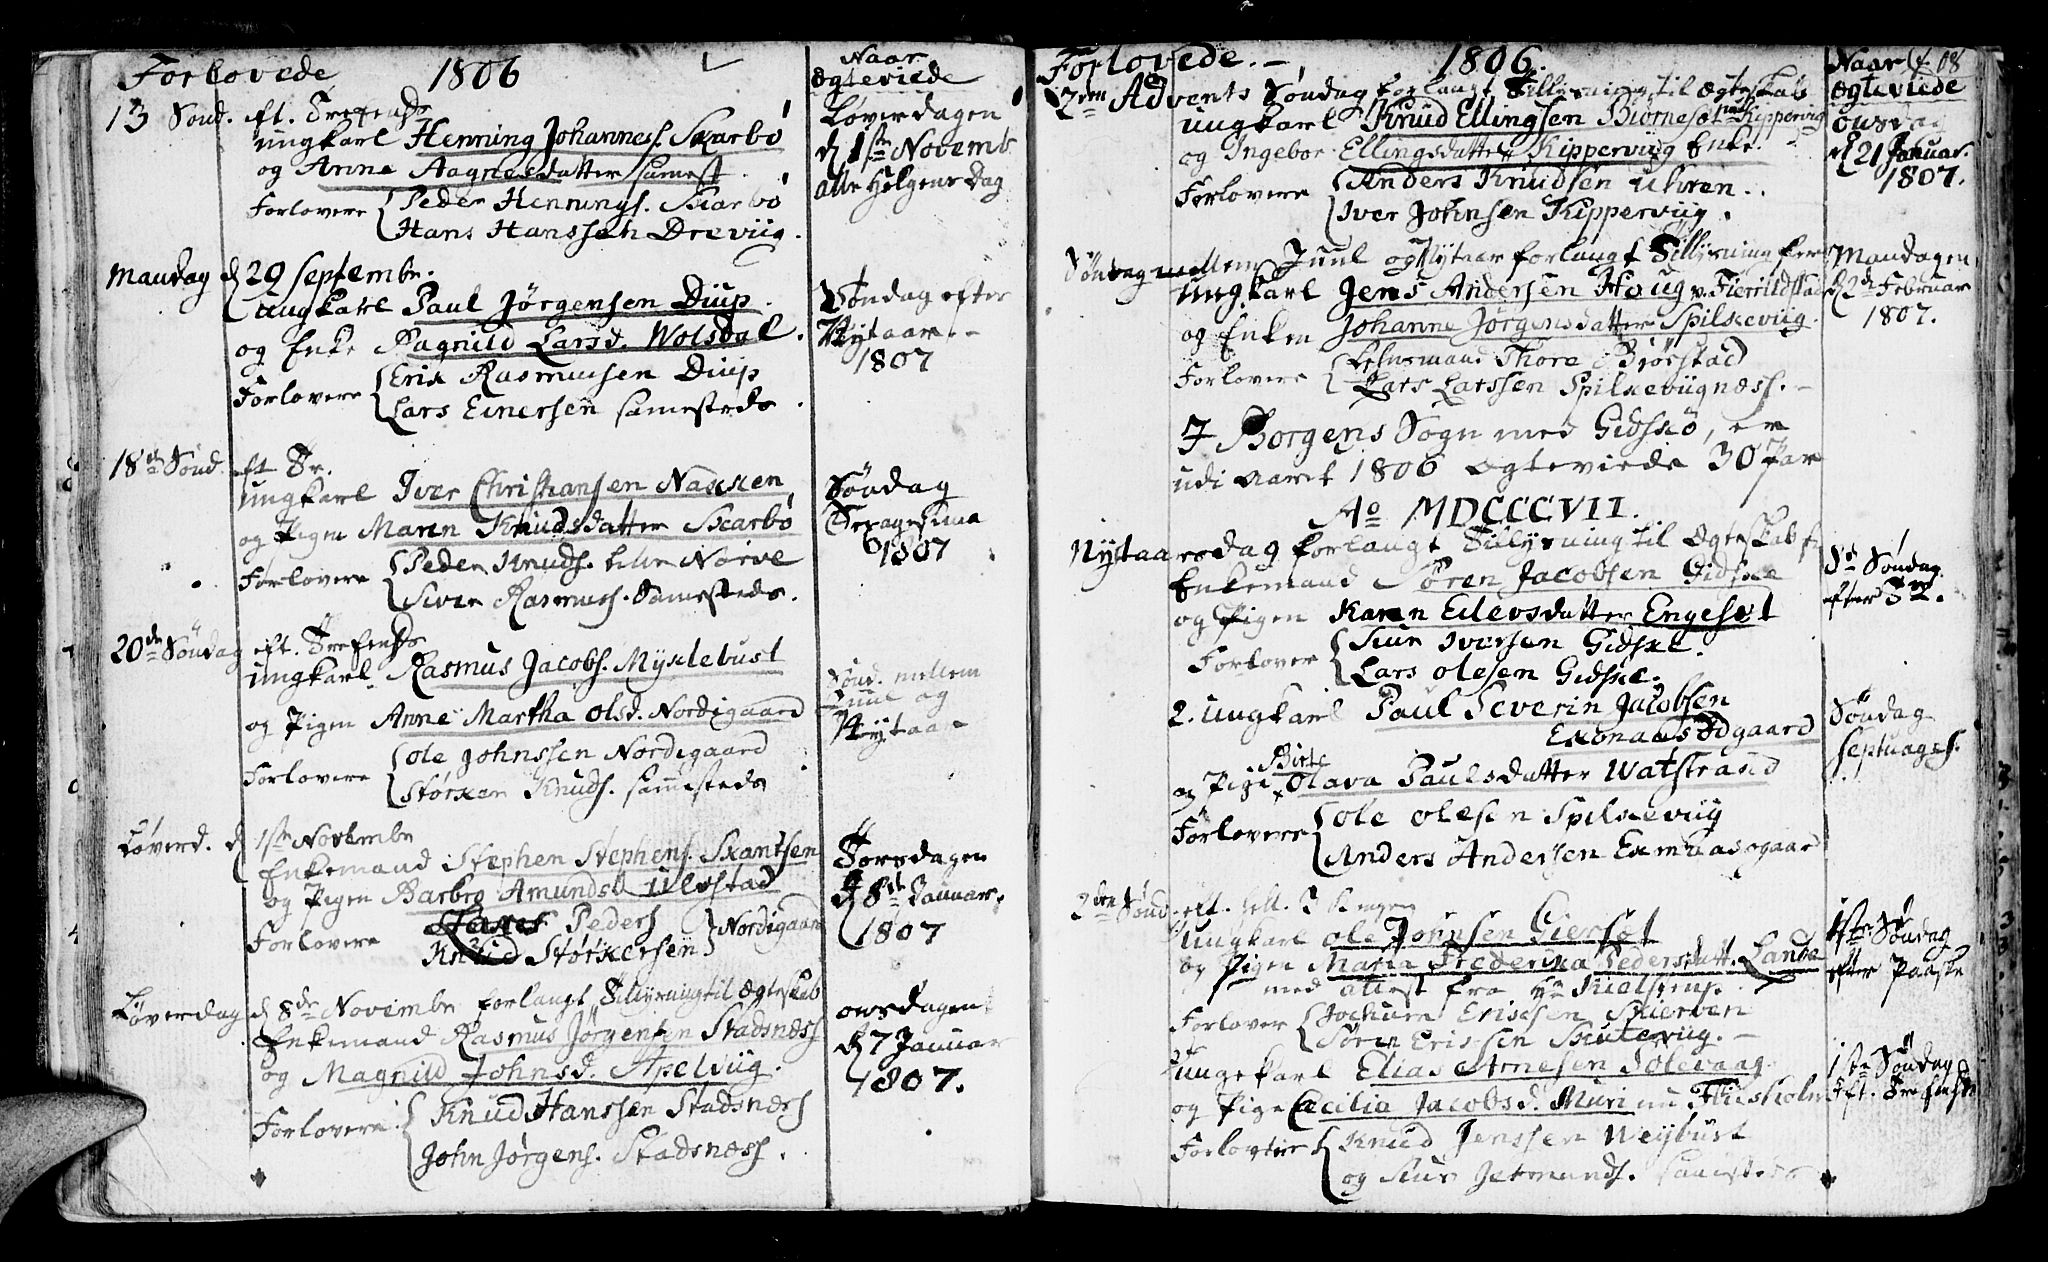 Forlovede 1806
Naar
Ægteviede
13 Sønd. eft. Trefends
ungkarl Henning Johanness. Skarbø
og Anne Aagnesdatter samest.
Forlovere Peder Hennings. Skarbø
Hans Hanssen Drevüg.
Løverdagen
d 1ste Novemb.
alle Helgens Dag
Mandag d 29 Septembr.
ungkarl Paul Jörgensen Diup.
og Enke Ragnild Larsd. Wolsdal.
Forlovere Erik Rasmusen Diup
Lars Einersen samesteds.
Søndag efter
Nytaar.
1807
18de Sønd. eft Tr.
ungkarl Iver Christiansen Nakken
og Pigen Maren Knudsdatter Skarbø
Forlovere Peder Knuds. Norve
Siver Rasmuss. Samesteds.
Søndag
Sexagesima
1807
20de Søndag eft. Trefends
ungkarl. Rasmus Jacobs. Myklebust
og Pigen Anne Martha Olsd. Nordigaard
Forlovere Ole Johnssen Nordigaard
Størker Knuds. samesteds
Sønd. mellem
Juul og
Nytaar
Løverd. d 1ste Novembr
Enkemand Stephen Stephens. Skantsen
og Pigen Barbro Amundsd. Ulvstad
Forlovere Peders
Knud Størkersen Nordigaard
Torsdagen
d 8de Januar.
1807
Løverdag d 8de Novembr forlangt Tillysning til Ægteskab
Enkemand Rasmus Jörgensen Stadsnæss
og Magnild Johnsd. Apelvüg.
Forlovere Knud Hanssen Stadsnæss
John Jørgens. Stadsnæss.
onsdagen
d 7 Januar
1807.
Forlovede. 1806.
Naar
Ægteviede
2den Advents Søndag forlangt Tillysning til Ægteskab
ungkarl Knud Ellingsen Biørnesøt nu Kippervig
og Ingebor Ellingsdatter Kippervüg Enke.
Forlovere Anders Knudsen Uhren.
Iver Johnsen Kippervüg.
onsdag
d 21 Januar.
1807.
Søndag mellem Juul og Nytaar forlangt Tillysning for
Ungkarl Jens Andersen Houg v. Fierrildstad
og Enken Johanne Jörgensdatter Spilkevüg.
Forlovere Lehnsmand Thore Brörstad
Lars Larssen Spilkevügnæss.
Mandagen
d 2de Februar
1807.
I Borgens Sogn med Gidskö, er
udi aaret 1806 Ægteviede 30 Par
Ao MDCCCVII.
Nytaarsdag forlangt Tillysning til Ægteskab for
Enkemand Søren Jacobsen Gidske
og Pigen Karen Eilevsdatter Engeset
Forlover Siur Iversen Gidske.
Lars Olesen Gidske.
Søndag
efter
2. Ungkarl Paul Severin Jacobsen
Exonaas Ødgaard
og Pige Birte Olava Paulsdatter Watstrand
Forlovere Ole Olesen Spilkevüg
Anders Andersen Exonaasogaard
Søndag
Septuages.
2den Sønd. eft. hell. 3 Konger
ungkarl Ole Johnsen Giersøt
og Pigen Maria Frederika Pedersdatt. Lande
med attest fra Hr Kielstrup.
Forlover Jochum Ericksen Skierven
Sören Erissen Skutevüg.
1ste Søndag
efter Paaske
ungekarl Elias Arnesen Solevaag
og Pige Cecilia Jacobsd. Muri nu Flisholm
Forlovere Knud Jenssen Weybust
og Siur Jetmunds. samesteds
1ste Søndag
eft. Trefends